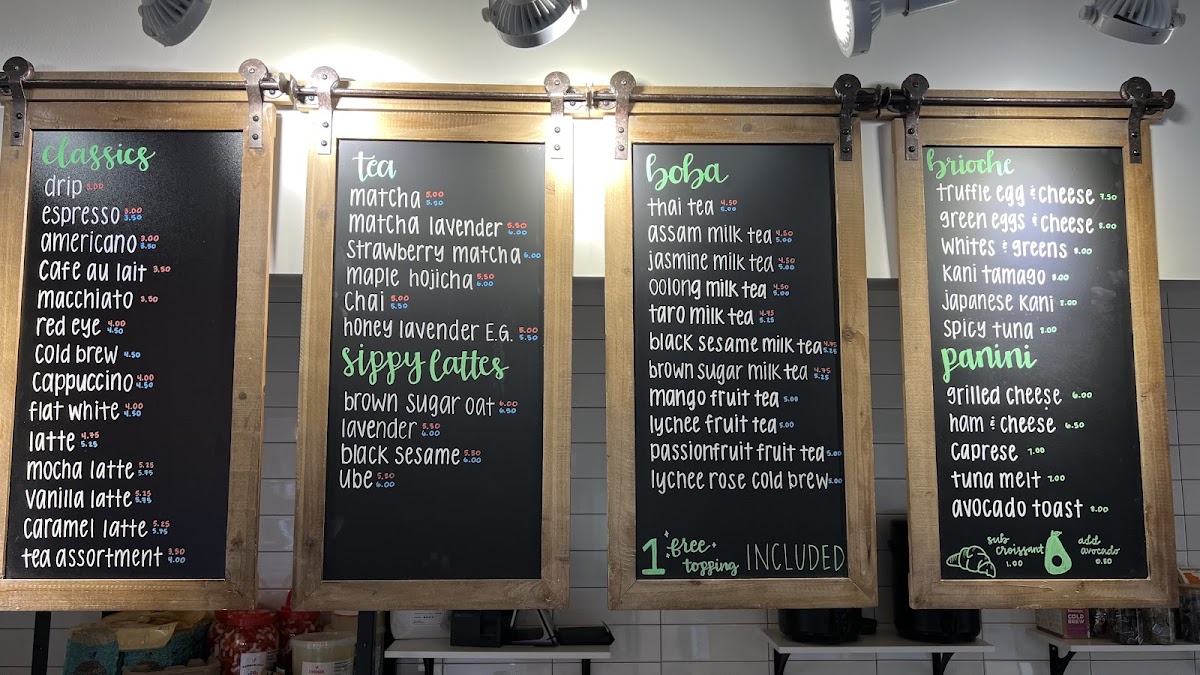 classics
drip 3.00
espresso 3.00 3.50
americano 3.00 3.50
cafe au lait 3.50
macchiato 3.50
red eye 4.00 4.50
cold brew 4.50
cappuccino 4.00 4.50
flat white 4.00 4.50
latte 4.75 5.25
mocha latte 5.25 5.75
vanilla latte 5.25 5.75
caramel latte 5.25 5.75
tea assortment 3.50 4.00
tea
matcha 5.00 5.50
matcha lavender 5.50 6.00
strawberry matcha 6.00
maple hojicha 5.50 6.00
chai 5.00 5.50
honey lavender E.G. 5.00 5.50
sippy lattes
brown sugar oat 6.00 6.50
lavender 5.50 6.00
black sesame 5.50 6.00
ube 5.50 6.00
boba
thai tea 4.50 5.00
assam milk tea 4.50 5.00
jasmine milk tea 4.50 5.00
oolong milk tea 4.50 5.00
taro milk tea 4.75 5.25
black sesame milk tea 4.75 5.25
brown sugar milk tea 4.75 5.25
mango fruit tea 5.00
lychee fruit tea 5.00
passionfruit fruit tea 5.00
lychee rose cold brew 5.00
1 free topping INCLUDED
brioche
truffle egg & cheese 7.50
green eggs & cheese 8.00
whites & greens 8.00
kani tamago 8.00
japanese kani 8.00
spicy tuna 8.00
panini
grilled cheese 6.00
ham & cheese 6.50
caprese 7.00
tuna melt 7.00
avocado toast 8.00
sub croissant 1.00
add avocado 0.50
COLD BREW